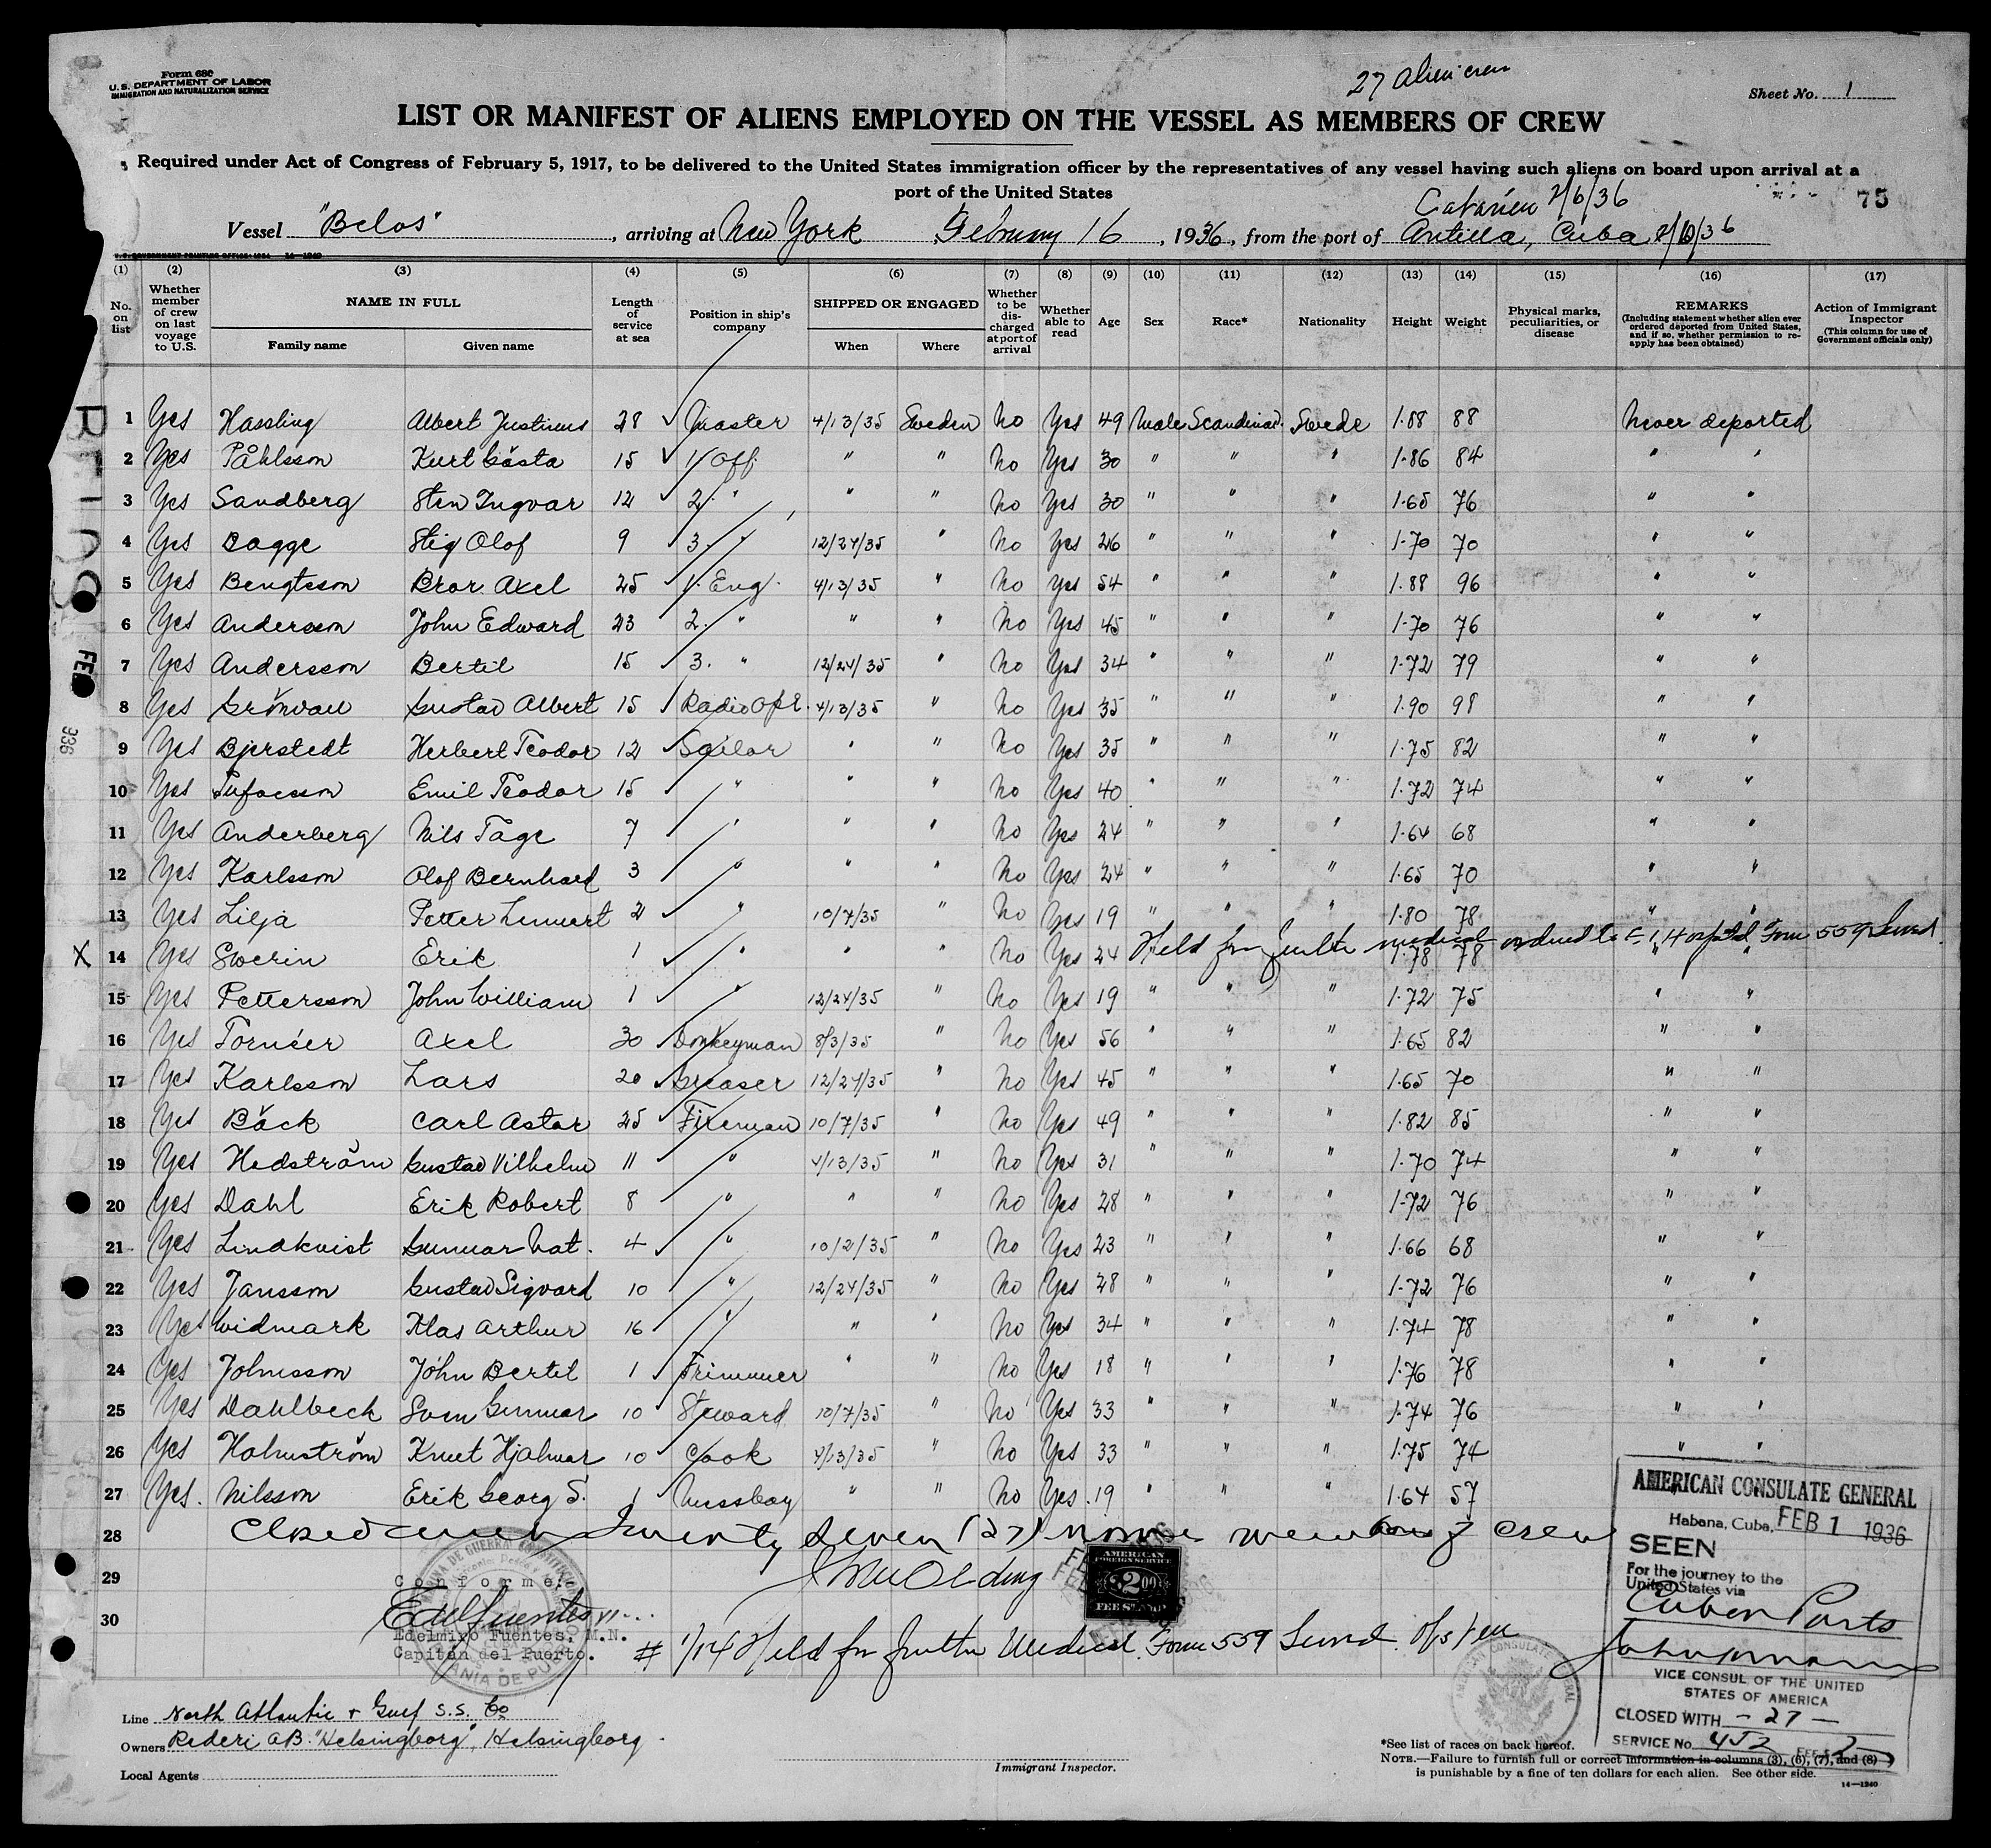 Form 680
U.S. DEPARTMENT OF LABOR
IMMIGRATION AND NATURALIZATION SERVICE
27 alien crew
Sheet No. 1
LIST OR MANIFEST OF ALIENS EMPLOYED ON THE VESSEL AS MEMBERS OF CREW
Required under Act of Congress of February 5, 1917, to be delivered to the United States immigration officer by the representatives of any vessel having such aliens on board upon arrival at a
port of the United States
75
2/6/36
Vessel "Belos", arriving at New York February 16, 1936, from the port of Antilla, Cuba
(1) (2) (3) (4) (5) (6) (7) (8) (9) (10) (11) (12) (13) (14) (15) (16) (17)
No. on list
Whether member of crew on last voyage to U.S.
NAME IN FULL
Family name
Given name
Length of service at sea
Position in ship's company
SHIPPED OR ENGAGED
When
Where
Whether to be discharged at port of arrival
Whether able to read
Age
Sex
Race*
Nationality
Height
Weight
Physical marks, peculiarities, or disease
REMARKS
(Including statement whether alien ever ordered deported from United States, and if so, whether permission to re-apply has been obtained)
Action of Immigrant Inspector
(This column for use of Government officials only)
1 Yes Hassling Albert Justinus 28 Master 4/13/35 Sweden No Yes 49 Male Scandinav. Swede 1.88 88 Never deported
2 Yes Påhlsson Kurt Gösta 15 1/Off. " " No Yes 30 " " " 1.86 84 " "
3 Yes Sandberg Sten Ingvar 12 2. " " " No Yes 30 " " " 1.65 76 " "
4 Yes Bagge Stig Olof 9 3. " 12/24/35 " No Yes 26 " " " 1.70 70 " "
5 Yes Bengtsson Bror Axel 25 1. Eng. 4/13/35 " No Yes 54 " " " 1.88 96 " "
6 Yes Andersson John Edward 23 2. " " " No Yes 45 " " " 1.70 76 " "
7 Yes Andersson Bertil 15 3. " 12/24/35 " No Yes 34 " " " 1.72 79 " "
8 Yes Grönvall Gustav Albert 15 Radio Opr. 4/13/35 " No Yes 35 " " " 1.90 98 " "
9 Yes Bjerstedt Herbert Teodor 12 Sailor " " No Yes 35 " " " 1.75 82 " "
10 Yes Emil Teodor 15 " " " No Yes 40 " " " 1.72 74 " "
11 Yes Anderberg Nils Tage 7 " " " No Yes 24 " " " 1.64 68 " "
12 Yes Karlsson Olof Bernhard 3 " " " No Yes 24 " " " 1.65 70 " "
13 Yes Lilja Petter Lennart 2 " 10/7/35 " No Yes 19 " " " 1.80 78 " "
X 14 Yes Swerin Erik 1 " " " No Yes 24 Held for further medical ordered to E.I. Hospital Form 559 Served 1.78 78 " "
15 Yes Pettersson John William 1 " 12/24/35 " No Yes 19 " " " 1.72 75 " "
16 Yes Tornéer Axel 30 Donkeyman 8/3/35 " No Yes 56 " " " 1.65 82 " "
17 Yes Karlsson Lars 20 Greaser 12/24/35 " No Yes 45 " " " 1.65 70 " "
18 Yes Bäck Carl Astar 25 Fireman 10/7/35 " No Yes 49 " " " 1.82 85 " "
19 Yes Hedström Gustav Vilhelm 11 " 4/13/35 " No Yes 31 " " " 1.70 74 " "
20 Yes Dahl Erik Robert 8 " " " No Yes 28 " " " 1.72 76 " "
21 Yes Lindkvist Gunnar Nat. 4 " 10/2/35 " No Yes 23 " " " 1.66 68 " "
22 Yes Jansson Gustav Sigvard 10 " 12/24/35 " No Yes 28 " " " 1.72 76 " "
23 Yes Widmark Klas Arthur 16 " " " No Yes 34 " " " 1.74 78 " "
24 Yes Johnsson John Bertil 1 Trimmer " " No Yes 18 " " " 1.76 78 " "
25 Yes Dahlbeck Sven Gunnar 10 Steward 10/7/35 " No Yes 33 " " " 1.74 76 " "
26 Yes Holmström Knut Hjalmar 10 Cook 4/13/35 " No Yes 33 " " " 1.75 74 " "
27 Yes. Nilsson Erik Georg S. 1 Messboy " " No Yes. 19 " " " 1.64 57
28 Closed with Twenty Seven (27) names members of crew
29
30
Conforme:
Edelmiro Fuentes, M.N.
Capitán del Puerto.
AMERICAN
FOREIGN SERVICE
$2.00
FEE STAMP
# 1/14 Held for further Medical. Form 559 Served.
AMERICAN CONSULATE GENERAL
Habana, Cuba, FEB 1 1936
SEEN
For the journey to the
United States via
Cuban Ports
VICE CONSUL OF THE UNITED
STATES OF AMERICA
CLOSED WITH - 27 -
SERVICE No. 452 FEE $ 2
Line North Atlantic & Gulf S.S. Co
Owners Rederi AB. "Helsingborg", Helsingborg.
Local Agents
Immigrant Inspector.
*See list of races on back hereof.
NOTE.—Failure to furnish full or correct information in columns (3), (6), (7), and (8)
is punishable by a fine of ten dollars for each alien. See other side.
14—1240